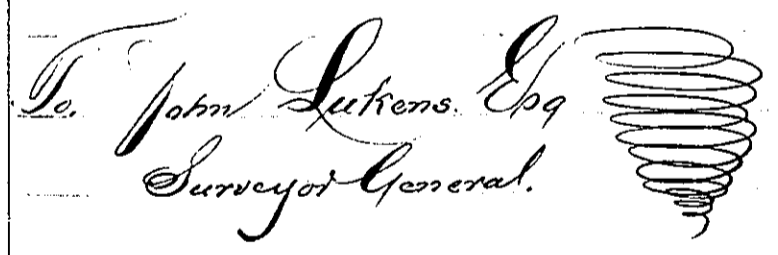 To. John Lukens. Esq
Surveyor General.